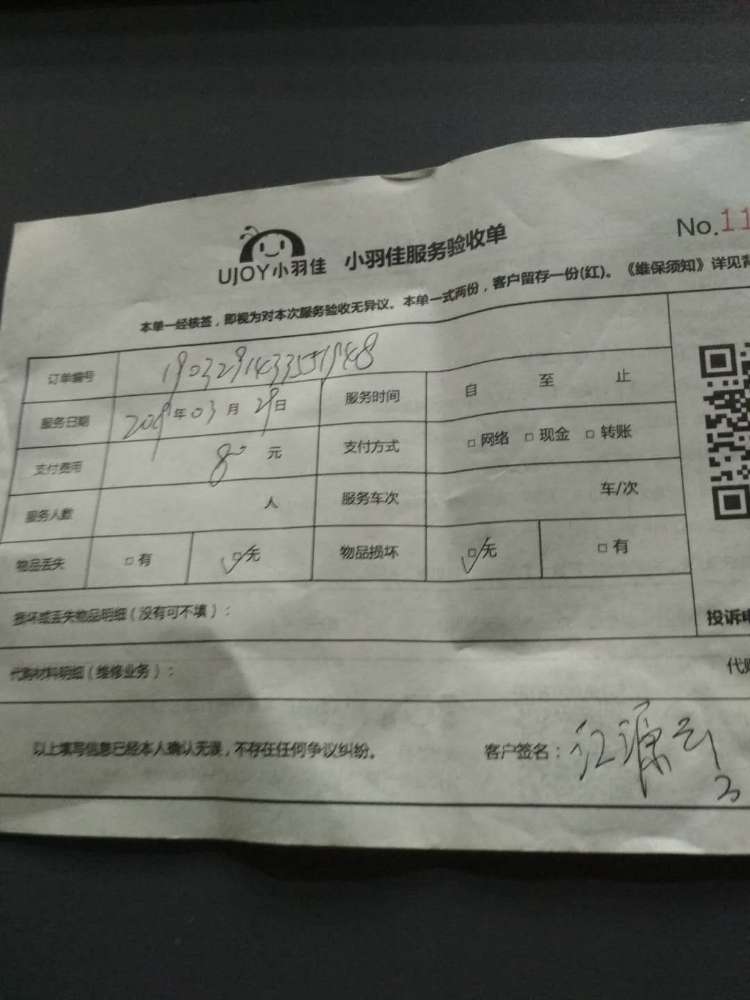 No.11
UJOY小羽佳 小羽佳服务验收单
本单一经核签，即视为对本次服务验收无异议。本单一式两份，客户留存一份(红)。《维保须知》详见背
订单编号
服务日期 2019年03月29日 服务时间 自 至 止
支付费用 80 元 支付方式 □网络 □现金 □转账
服务人数 人 服务车次 车/次
物品丢失 □有 ☑无 物品损坏 ☑无 □有
损坏或丢失物品明细（没有可不填）：
投诉电
代购材料明细（维修业务）： 代购
以上填写信息已经本人确认无误，不存在任何争议纠纷。 客户签名：